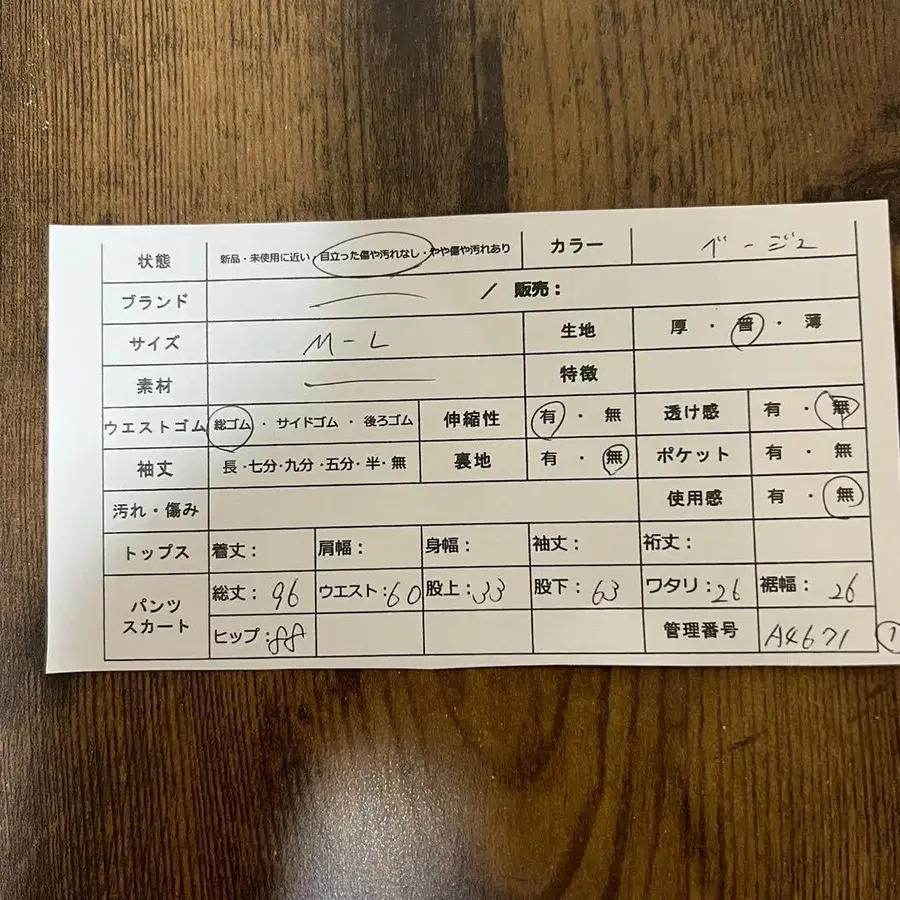 状態 新品・未使用に近い・目立った傷や汚れなし・やや傷や汚れあり カラー ベージュ
ブランド / 販売：
サイズ M-L 生地 厚・普・薄
素材 特徴
ウエストゴム 総ゴム・サイドゴム・後ろゴム 伸縮性 有・無 透け感 有・無
袖丈 長・七分・九分・五分・半・無 裏地 有・無 ポケット 有・無
汚れ・傷み 使用感 有・無
トップス 着丈： 肩幅： 身幅： 袖丈： 裄丈：
パンツ スカート 総丈：96 ウエスト：60 股上：33 股下：63 ワタリ：26 裾幅：26
ヒップ：88 管理番号 A4671 1